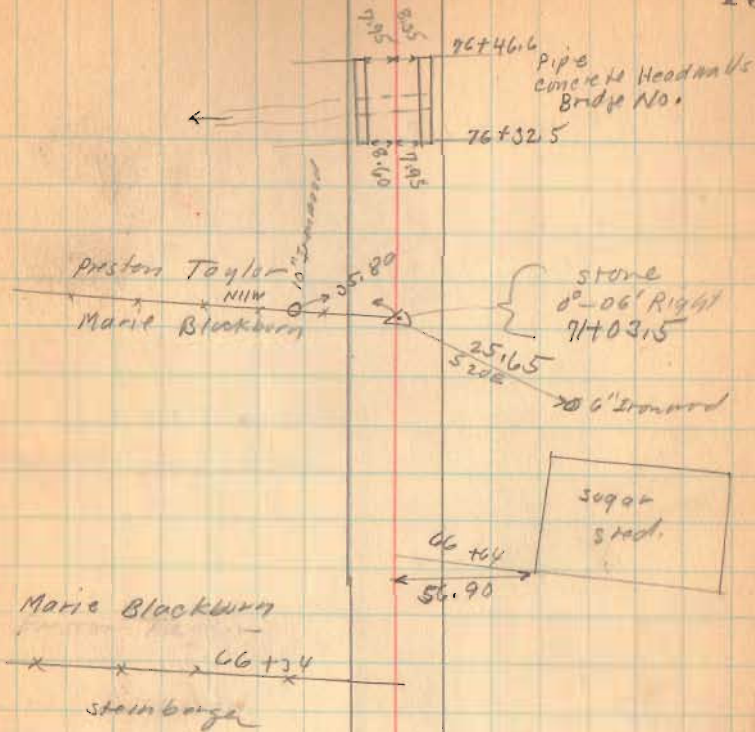 7.95 8.35
76+46.6
Pipe
Concrete Headwalls
Bridge No.
76+32.5
8.60 7.95
10" Ironwood
Preston Taylor
35.80
N11W
Marie Blackburn
Stone
0°-06' Right
71+03.5
25.65
S20E
6" Ironwood
Sugar
Shed.
66+64
56.90
Marie Blackburn
66+34
Steinberger